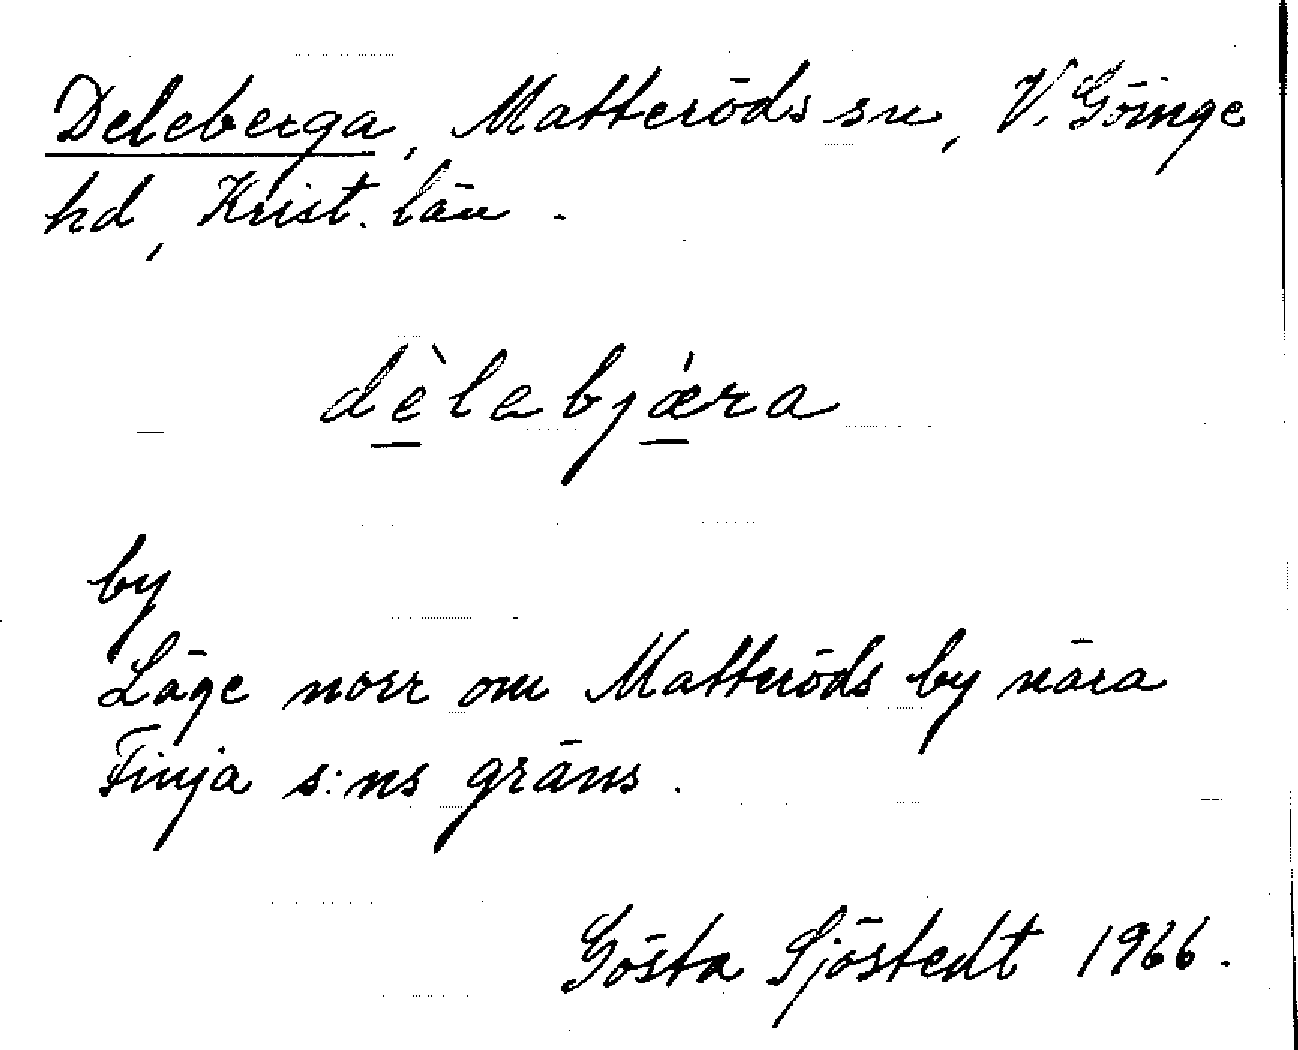 Deleberga, Matteröds sn, V. Göinge
hd, Krist. län.
dèlebjæ̀ra
by
Läge norr om Matteröds by nära
Finja s:ns gräns.
Gösta Sjöstedt 1966.